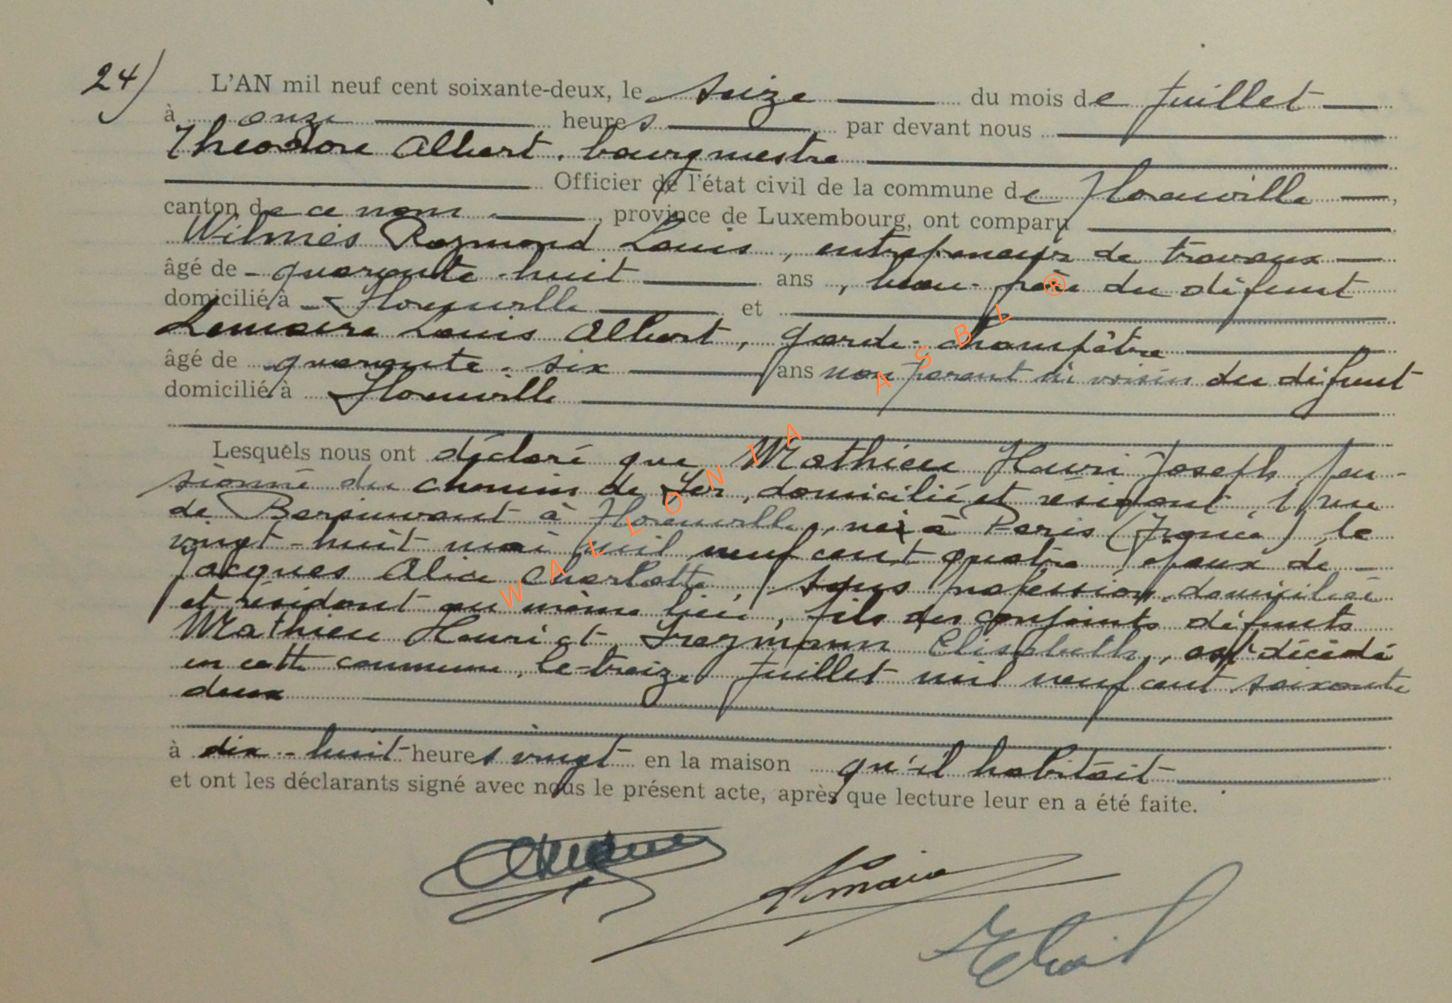 24)
L'AN mil neuf cent soixante-deux, le seize du mois de Juillet
à onze heures par devant nous
Théodore Albert, bourgmestre
Officier de l'état civil de la commune de Florenville
canton de ce nom, province de Luxembourg, ont comparu
Wilmès Raymond Louis, entrepreneur de travaux
âgé de quarante-huit ans, beau-frère du défunt
domicilié à Florenville et
Lemaire Louis Albert, garde-champêtre
âgé de quarante-six ans non parent ni voisin du défunt
domicilié à Florenville
Lesquels nous ont déclaré que Mathieu Henri Joseph pen-
sionné du chemin de fer, domicilié et résidant rue
de à Florenville, né à Paris (France) le
vingt-huit mai mil neuf cent quatre, époux de
Jacques Alice Charlotte, sans profession, domiciliée
et résidant au même lieu, fils des conjoints défunts
Mathieu Henri et Elisabeth, est décédé
en cette commune, le treize Juillet mil neuf cent soixante
deux
à dix-huit heures vingt en la maison qu'il habitait
et ont les déclarants signé avec nous le présent acte, après que lecture leur en a été faite.
WALLONIA ASBL ®